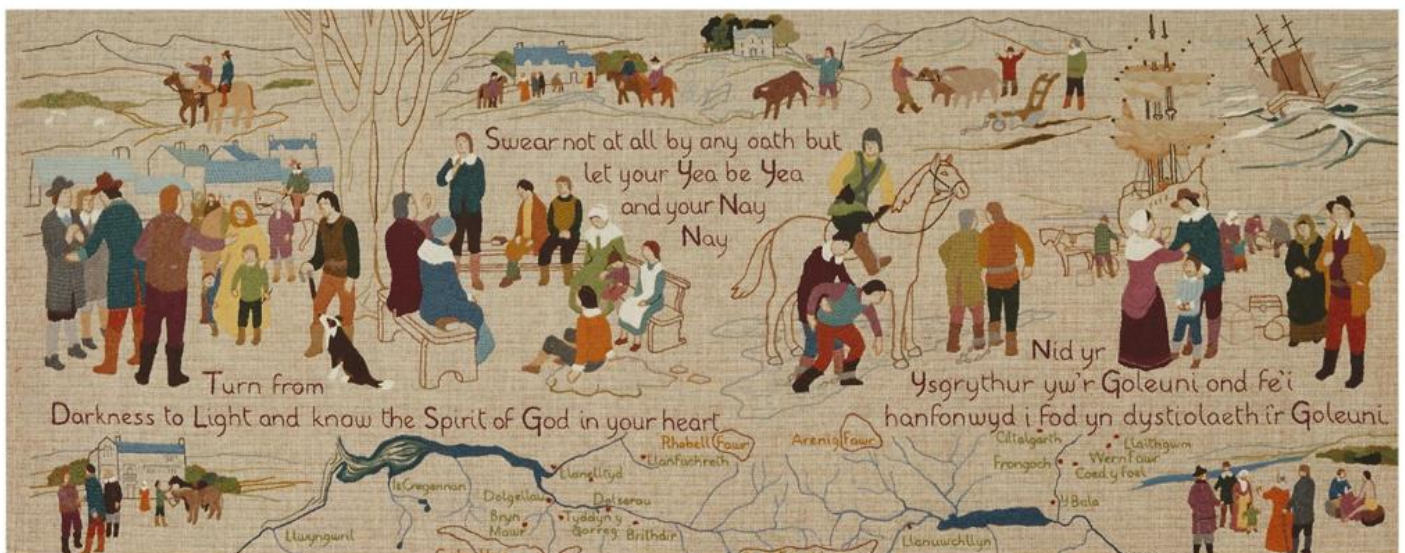 Swear not at all by any oath but
let your Yea be Yea
and your Nay
Nay
Turn from
Darkness to Light and know the Spirit of God in your heart
Nid yr
Ysgrythur yw'r Goleuni ond fe'i
hanfonwyd i fod yn dystiolaeth i'r Goleuni
Rhobell Fawr
Arenig Fawr
Ciltalgarth
Llaithgwm
Llanfachreth
Frongoch
Wern Fawr
Coed y foel
Llanelltyd
Is Cregennan
Dolgellau
Dolserau
Y Bala
Bryn
Mawr
Tyddyn y
Garreg
Brithdir
Llwyngwril
Llanuwchllyn